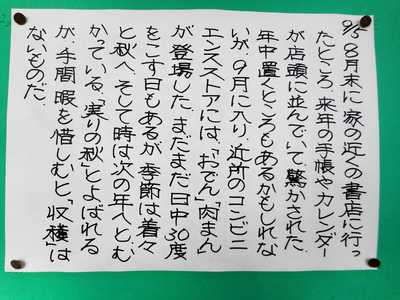 9/5 8月末に家の近くの書店に行っ
たところ、来年の手帳やカレンダー
が店頭に並んでいて驚かされた。
年中置くところもあるかもしれな
いが、9月に入り、近所のコンビニ
エンスストアには、「おでん」「肉まん」
が登場した。まだまだ日中30度
をこす日もあるが、季節は着々
と秋へ、そして時は次の年へとむ
かっている。「実りの秋」とよばれる
が、手間暇を惜しむと「収穫」は
ないものだ。